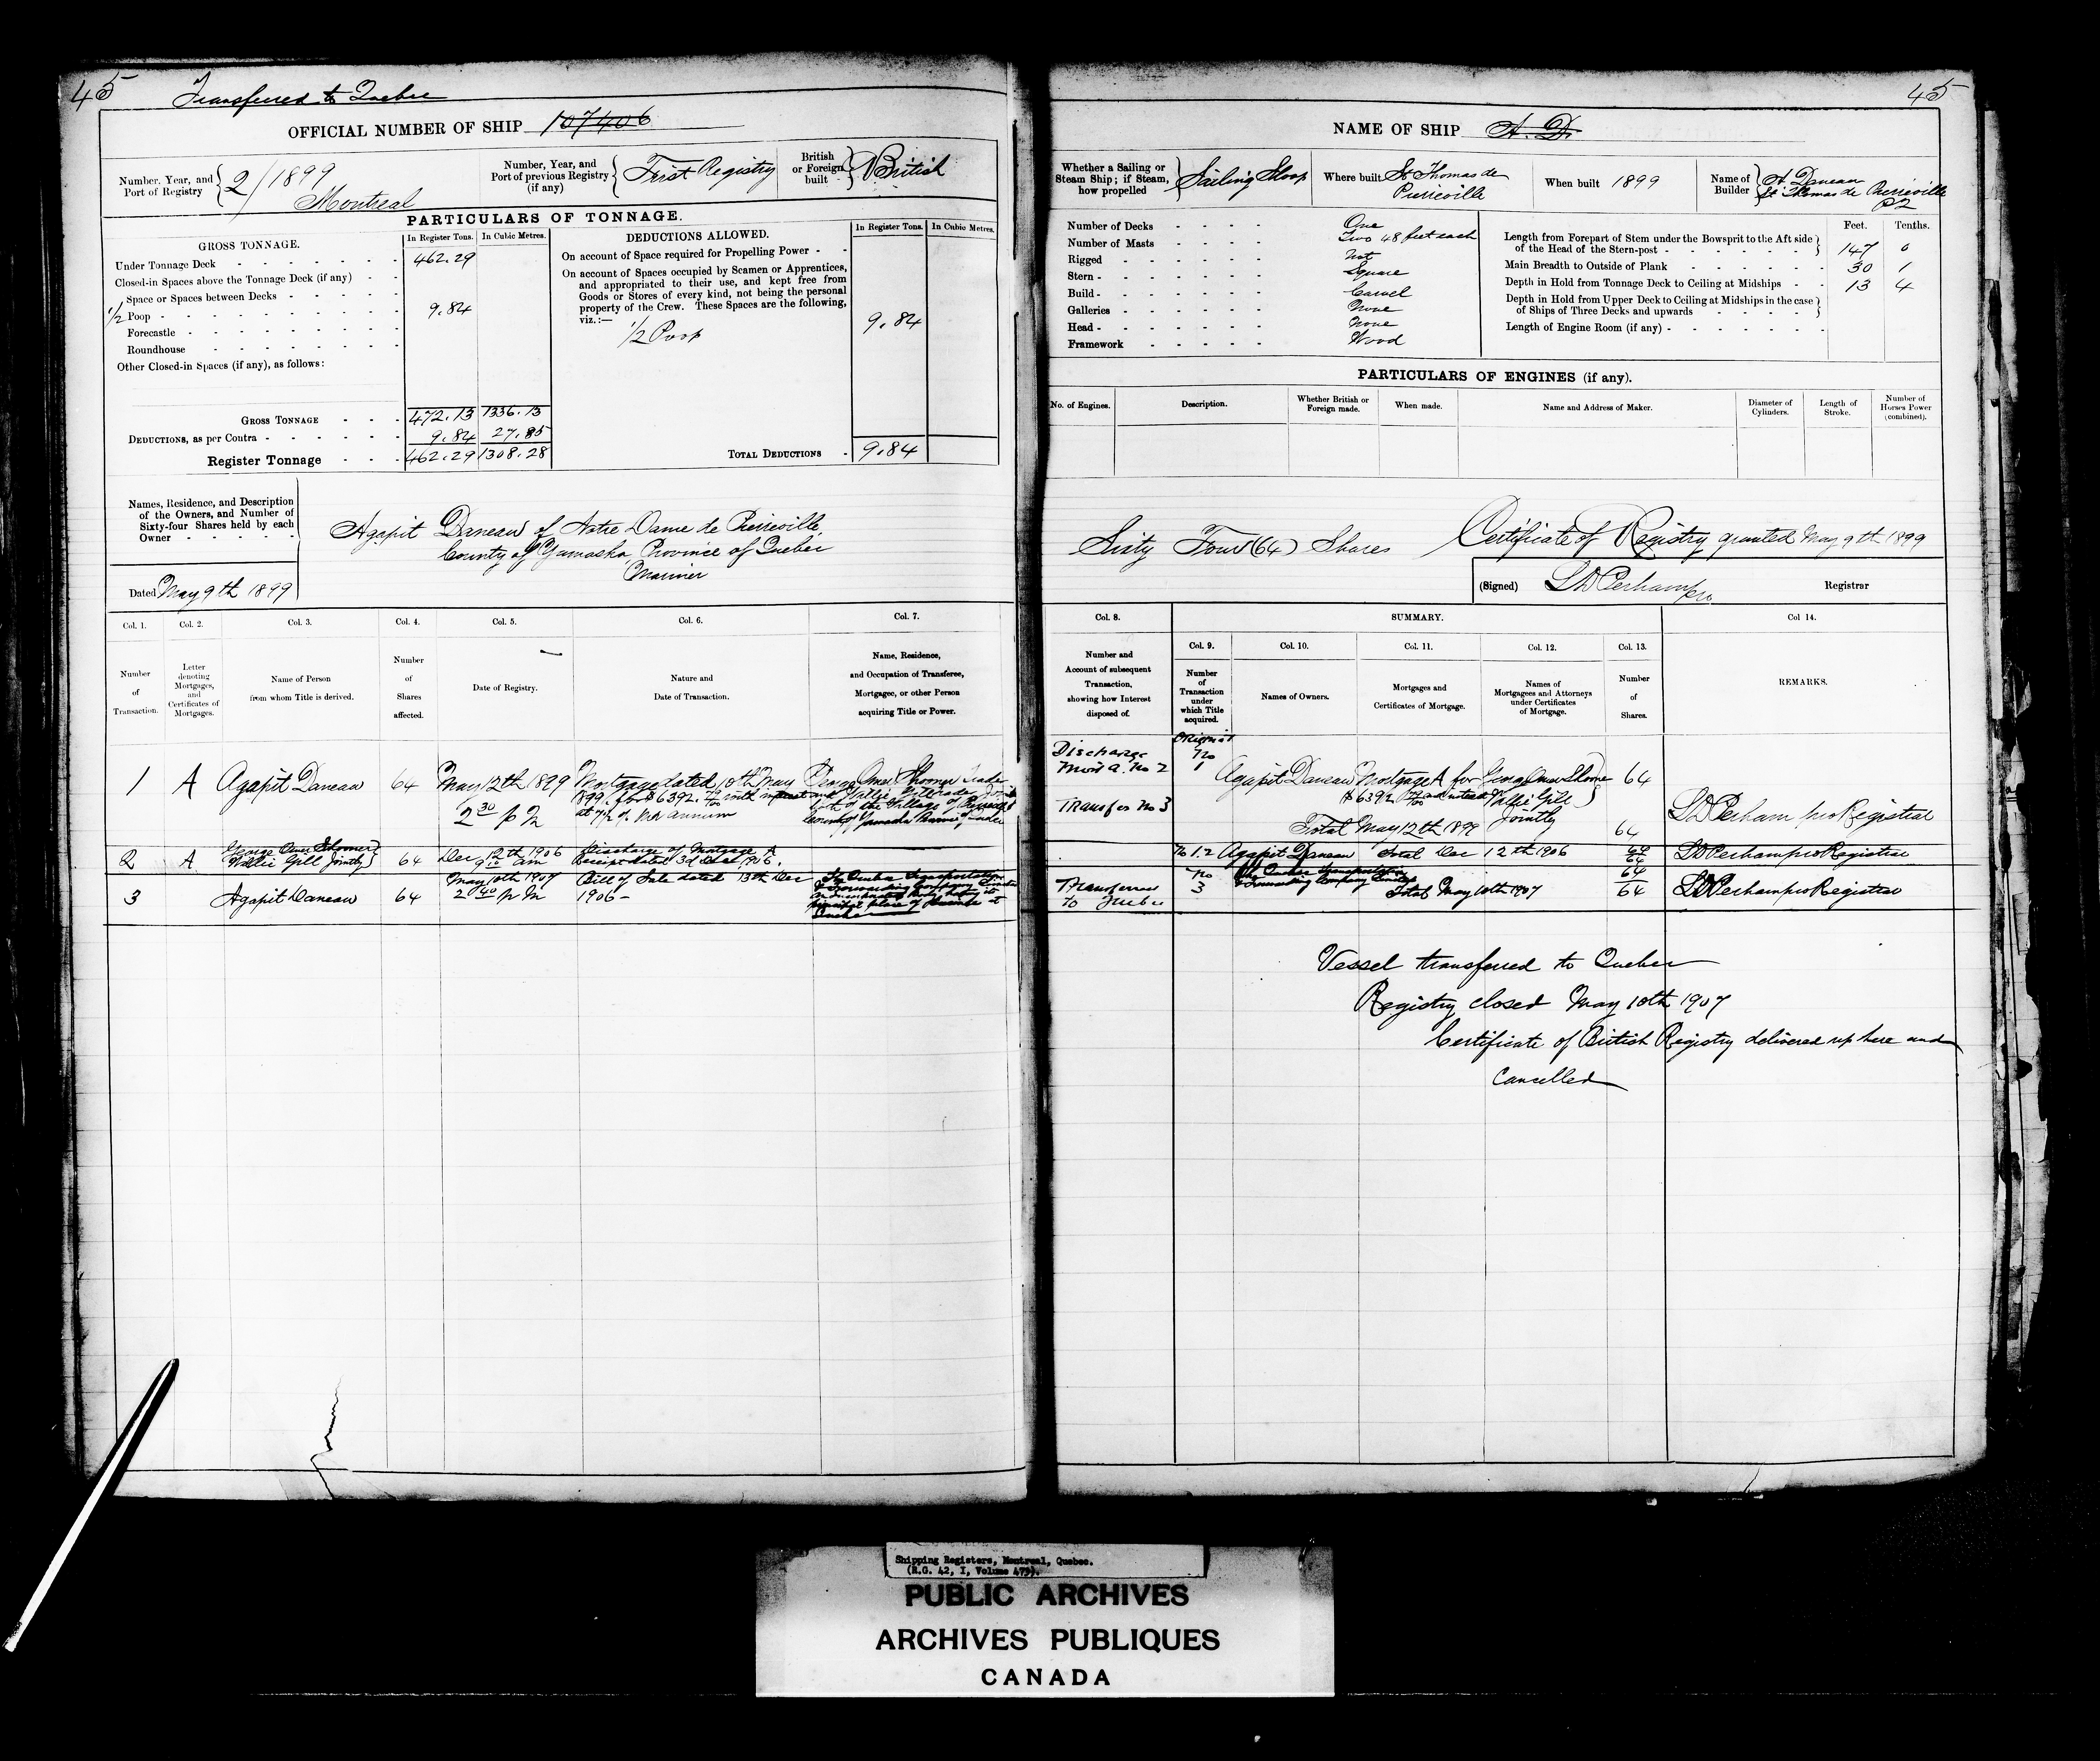 45
Transferred to Quebec
OFFICIAL NUMBER OF SHIP 107406
Number, Year, and Port of Registry 2/1899 Montreal
Number, Year, and Port of previous Registry (if any) First Registry
British or Foreign built British
PARTICULARS OF TONNAGE.
GROSS TONNAGE. In Register Tons. In Cubic Metres.
Under Tonnage Deck 462.29
Closed-in Spaces above the Tonnage Deck (if any)
Space or Spaces between Decks
1/2 Poop 9.84
Forecastle
Roundhouse
Other Closed-in Spaces (if any), as follows:
GROSS TONNAGE 472.13 1336.13
DEDUCTIONS, as per Contra 9.84 27.85
Register Tonnage 462.29 1308.28
DEDUCTIONS ALLOWED. In Register Tons. In Cubic Metres.
On account of Space required for Propelling Power
On account of Spaces occupied by Seamen or Apprentices,
and appropriated to their use, and kept free from
Goods or Stores of every kind, not being the personal
property of the Crew. These Spaces are the following,
viz.:—
1/2 Poop 9.84
TOTAL DEDUCTIONS 9.84
Names, Residence, and Description
of the Owners, and Number of
Sixty-four Shares held by each
Owner
Agapit Daneau of Notre Dame de Pierreville
County of Yamaska Province of Quebec
Mariner
Dated May 9th 1899
Col. 1. Col. 2. Col. 3. Col. 4. Col. 5. Col. 6. Col. 7.
Number of Transaction.
Letter denoting Mortgages, and Certificates of Mortgages.
Name of Person from whom Title is derived.
Number of Shares affected.
Date of Registry.
Nature and Date of Transaction.
Name, Residence, and Occupation of Transferee, Mortgagee, or other Person acquiring Title or Power.
1 A Agapit Daneau 64 May 12th 1899 2 30 p m
Mortgage dated 10th May 1899 for $6392. with interest at 7 1/2 % per annum
2 A George Omer Shooner Wallie Gill Jointly 64 Dec 12th 1906
Discharge of Mortgage A
Receipt dated 3d Dec 1906.
3 Agapit Daneau 64 May 10th 1907 2 40 p m
Bill of Sale dated 13th Dec 1906-
The Quebec Transportation & Forwarding Company Limited
principal place of business at Quebec
45
NAME OF SHIP A. D.
Whether a Sailing or Steam Ship; if Steam, how propelled Sailing Sloop
Where built St Thomas de Pierreville
When built 1899
Name of Builder A Daneau St Thomas de Pierreville PQ
Number of Decks One
Number of Masts Two 48 feet each
Rigged Not
Stern Square
Build Carvel
Galleries None
Head None
Framework Wood
Feet. Tenths.
Length from Forepart of Stem under the Bowsprit to the Aft side of the Head of the Stern-post 147 0
Main Breadth to Outside of Plank 30 1
Depth in Hold from Tonnage Deck to Ceiling at Midships 13 4
Depth in Hold from Upper Deck to Ceiling at Midships in the case of Ships of Three Decks and upwards
Length of Engine Room (if any)
PARTICULARS OF ENGINES (if any).
No. of Engines. Description. Whether British or Foreign made. When made. Name and Address of Maker. Diameter of Cylinders. Length of Stroke. Number of Horses Power (combined).
Sixty Four (64) Shares
Certificate of Registry granted May 9th 1899
(Signed) LD Perham pro Registrar
Col. 8. SUMMARY. Col 14.
Col. 9. Col. 10. Col. 11. Col. 12. Col. 13.
Number and Account of subsequent Transaction, showing how Interest disposed of.
Number of Transaction under which Title acquired.
Names of Owners.
Mortgages and Certificates of Mortgage.
Names of Mortgagees and Attorneys under Certificates of Mortgage.
Number of Shares.
REMARKS.
Discharge Mort A. No 2
Transfer No 3
Original No 1
Agapit Daneau Mortgage A for $6392 George Omer Shooner Wallie Gill Jointly 64
Total May 12th 1899 64
LD Perham pro Registrar
No 1.2 Agapit Daneau Total Dec 12th 1906 64 64
LD Perham pro Registrar
Transferred to Quebec
No 3 The Quebec Transportation & Forwarding Company Limited 64
Total May 10th 1907 64
LD Perham pro Registrar
Vessel transferred to Quebec
Registry closed May 10th 1907
Certificate of British Registry delivered up here and
Cancelled
Shipping Registers, Montreal, Quebec.
(R.G. 42, I, Volume 479).
PUBLIC ARCHIVES
ARCHIVES PUBLIQUES
CANADA